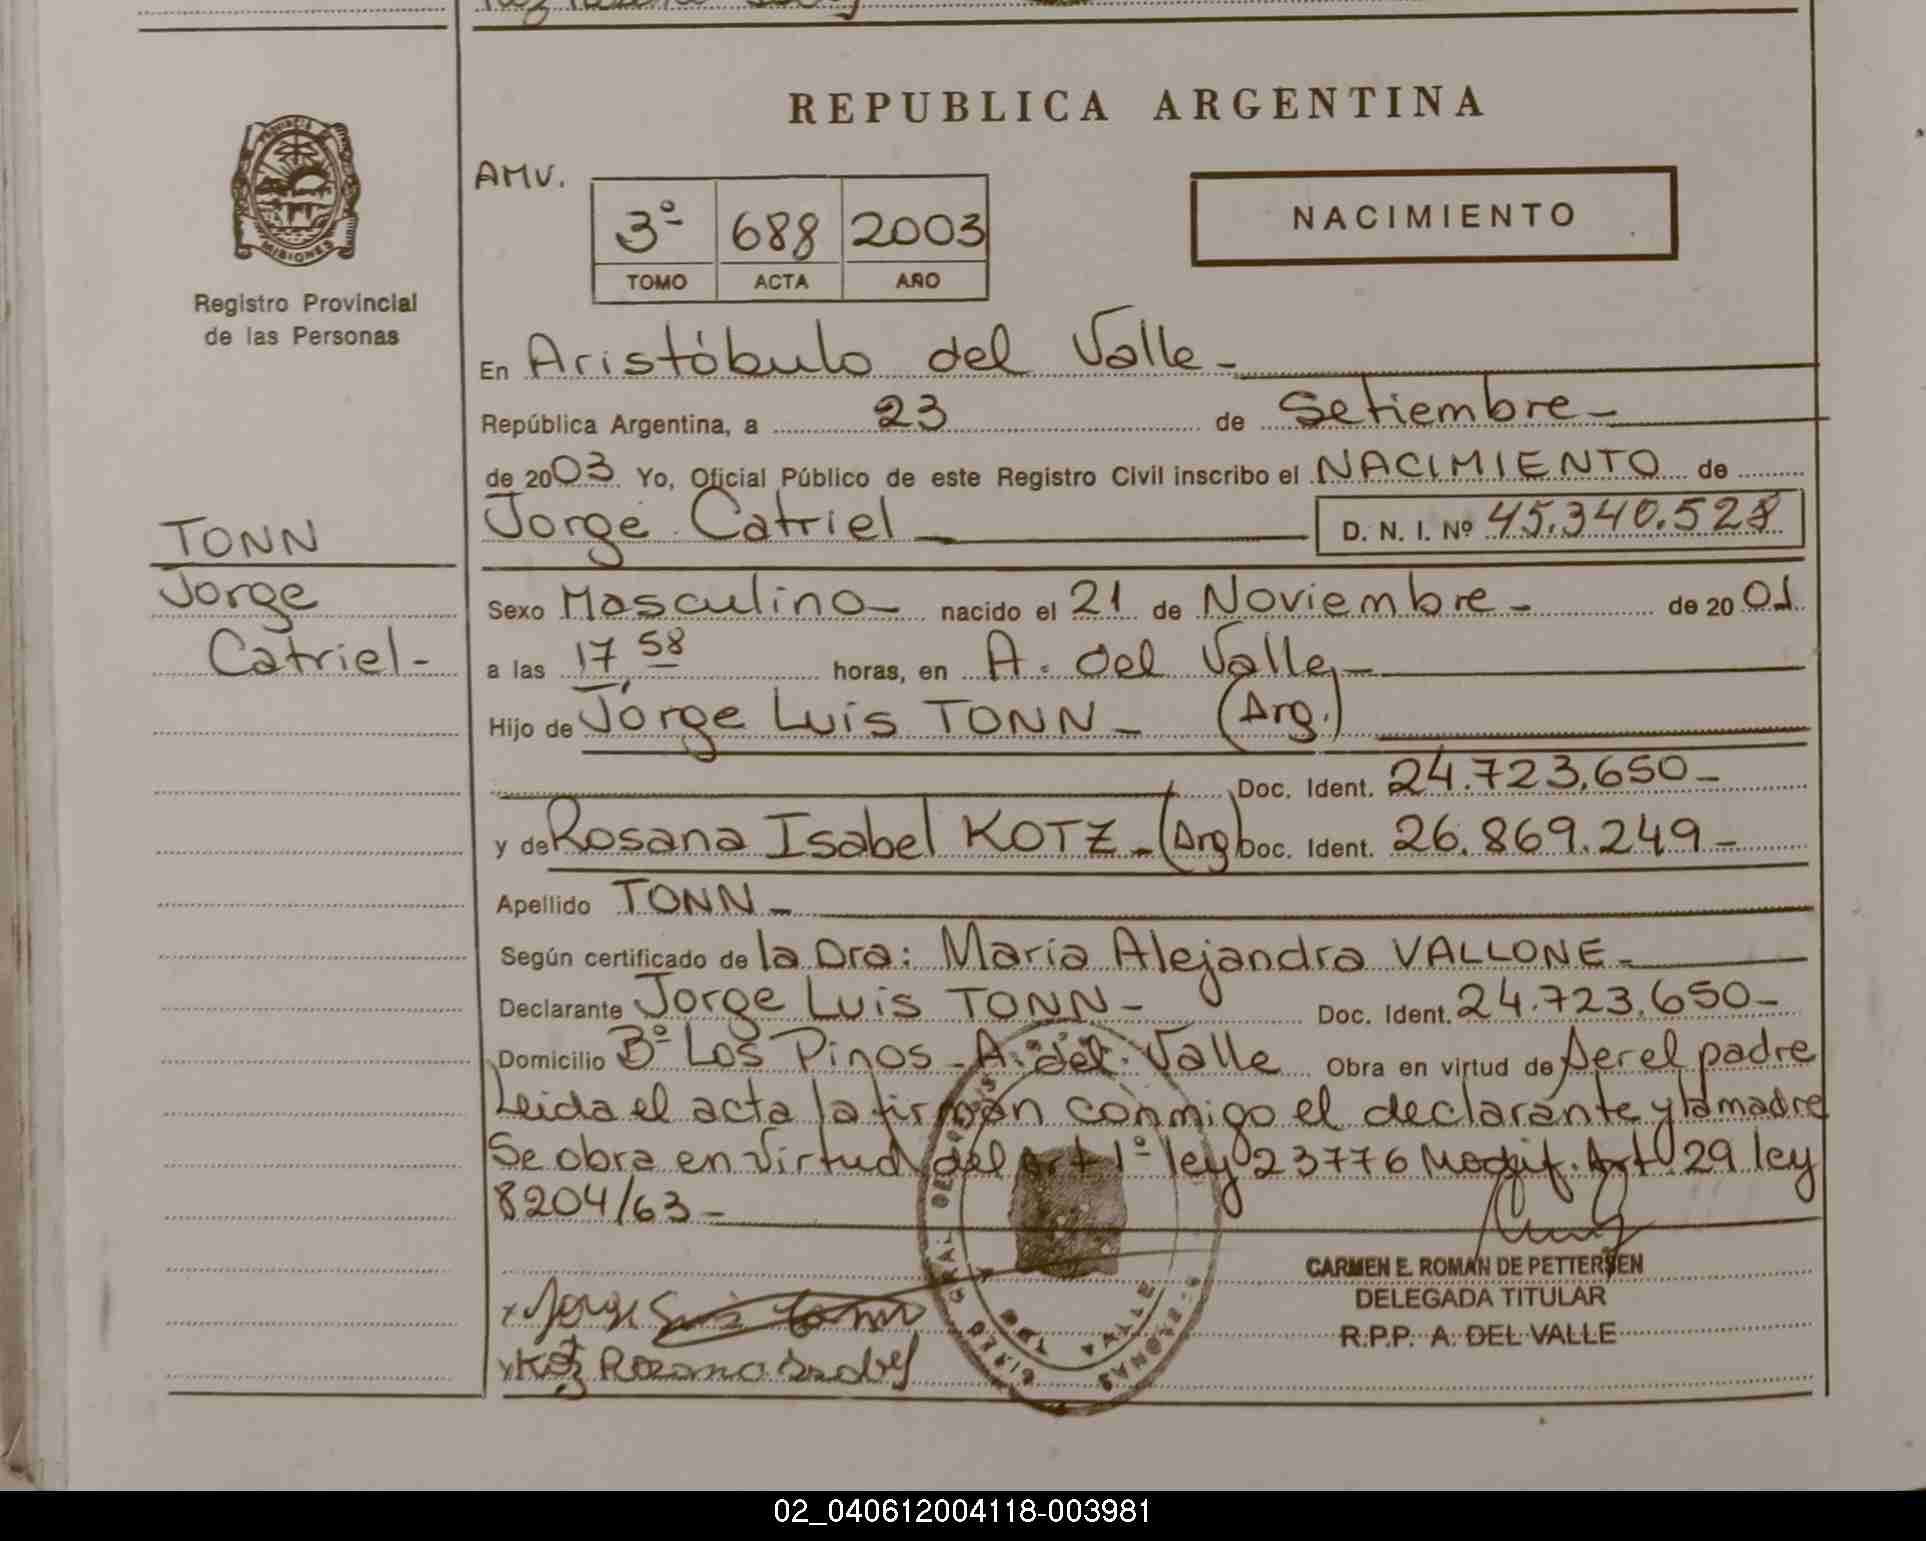 REPUBLICA ARGENTINA
PROVINCIA DE
MISIONES
Registro Provincial
de las Personas
AMV.
3º 688 2003
TOMO ACTA AÑO
NACIMIENTO
En Aristóbulo del Valle-
República Argentina, a 23 de Setiembre-
de 2003 Yo, Oficial Público de este Registro Civil inscribo el NACIMIENTO de
Jorge Catriel D. N. I. Nº 45.340.528
TONN
Jorge
Catriel-
Sexo Masculino- nacido el 21 de Noviembre- de 2001
a las 17,58 horas, en A. del Valle,-
Hijo de Jorge Luis TONN- (Arg.)
Doc. Ident. 24.723.650-
y de Rosana Isabel KOTZ-(Arg) Doc. Ident. 26.869.249-
Apellido TONN-
Según certificado de la Dra: María Alejandra VALLONE-
Declarante Jorge Luis TONN- Doc. Ident. 24.723.650-
Domicilio Bº Los Pinos-A. del Valle Obra en virtud de ser el padre
Leida el acta la firman conmigo el declarante y la madre
Se obra en virtud del art 1º ley 23776 Modif. Art 29 ley
8204/63-
CARMEN E. ROMAN DE PETTERSEN
DELEGADA TITULAR
R.P.P. A. DEL VALLE
x Jorge Luis Tonn
x Kotz Rosana Isabel
DEL VALLE
02_040612004118-003981